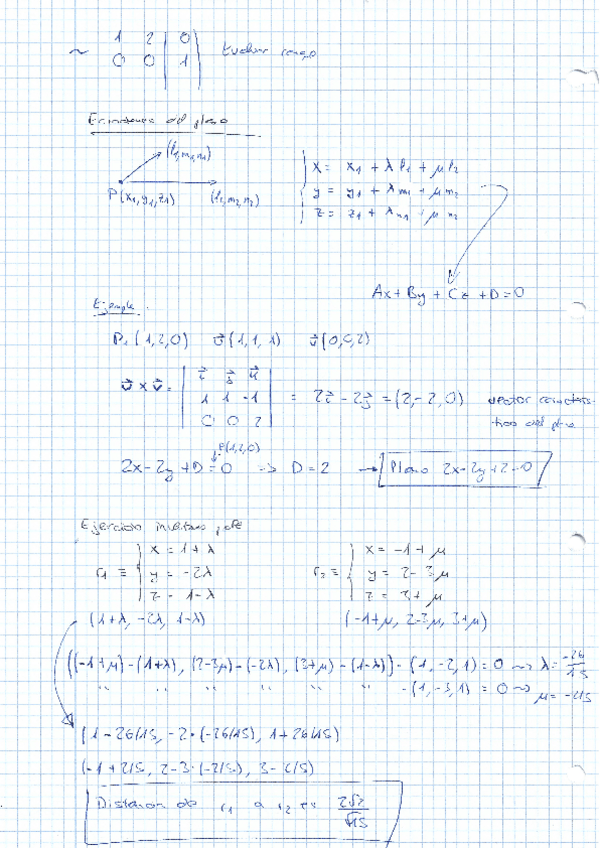 ~ 1 2 | 0 |
0 0 | 1 | Evaluar rango
Ecuaciones del plano
(l₁,m₁,n₁)
P(x₁,y₁,z₁) (l₂,m₂,n₂)
x = x₁ + λ l₁ + μ l₂
y = y₁ + λ m₁ + μ m₂
z = z₁ + λ n₁ + μ n₂
Ax + By + Cz + D = 0
Ejemplo.
P₁(1,2,0) u⃗(1,1,1) v⃗(0,0,2)
u⃗ x v⃗ = | i⃗ j⃗ k⃗ |
| 1 1 -1 | = 2i⃗ - 2j⃗ = (2,-2,0) vector caracterís-
| 0 0 2 | tico del plano
P(1,2,0)
2x - 2y + D = 0 → D = 2 → Plano 2x - 2y + 2 = 0
Ejercicio
r₁ ≡ { x = 1 + λ r₂ ≡ { x = -1 + μ
y = -2λ y = 2 - 3μ
z = 1 - λ z = 3 + μ
(1+λ, -2λ, 1-λ) (-1+μ, 2-3μ, 3+μ)
((-1+μ) - (1+λ), (2-3μ) - (-2λ), (3+μ) - (1-λ)) - (1, -2, 1) = 0 ⇝ λ = -26/15
" " " " " " - (1, -3, 1) = 0 ⇝ μ = -2/5
(1 - 26/15, -2·(-26/15), 1 + 26/15)
(-1 + 2/5, 2 - 3·(-2/5), 3 - 2/5)
Distancia de r₁ a r₂ es 2√2/√15